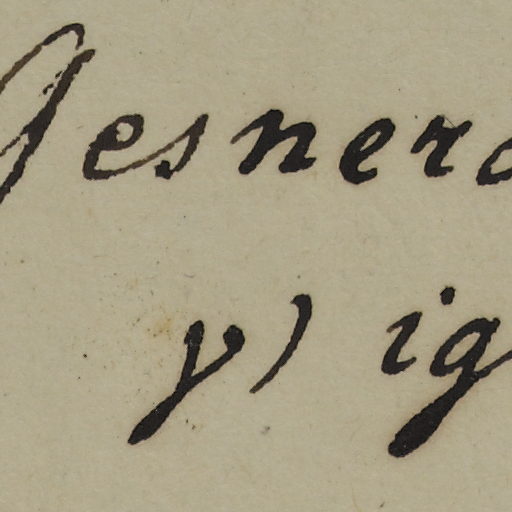 Gesnera
γ) ig